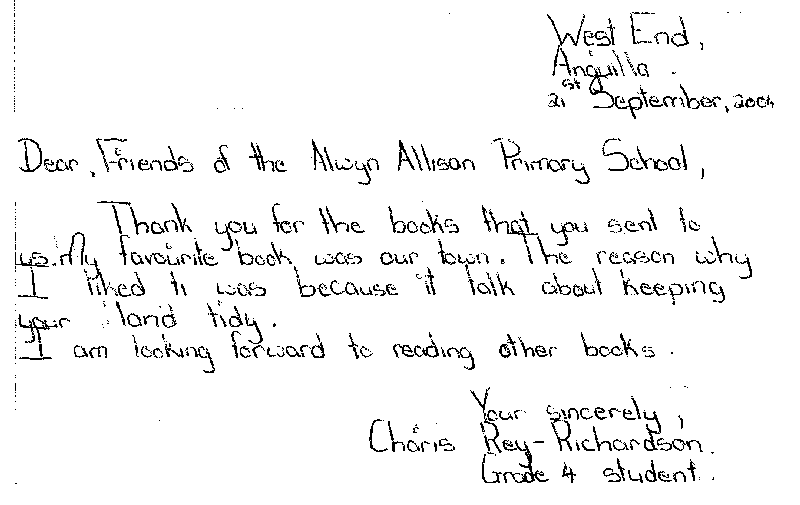 West End,
Anguilla.
21st September, 2004
Dear, Friends of the Alwyn Allison Primary School,
Thank you for the books that you sent to
us. My favourite book was our town. The reason why
I liked ti was because it talk about keeping
your land tidy.
I am looking forward to reading other books.
Your sincerely,
Charis Rey-Richardson.
Grade 4 student.